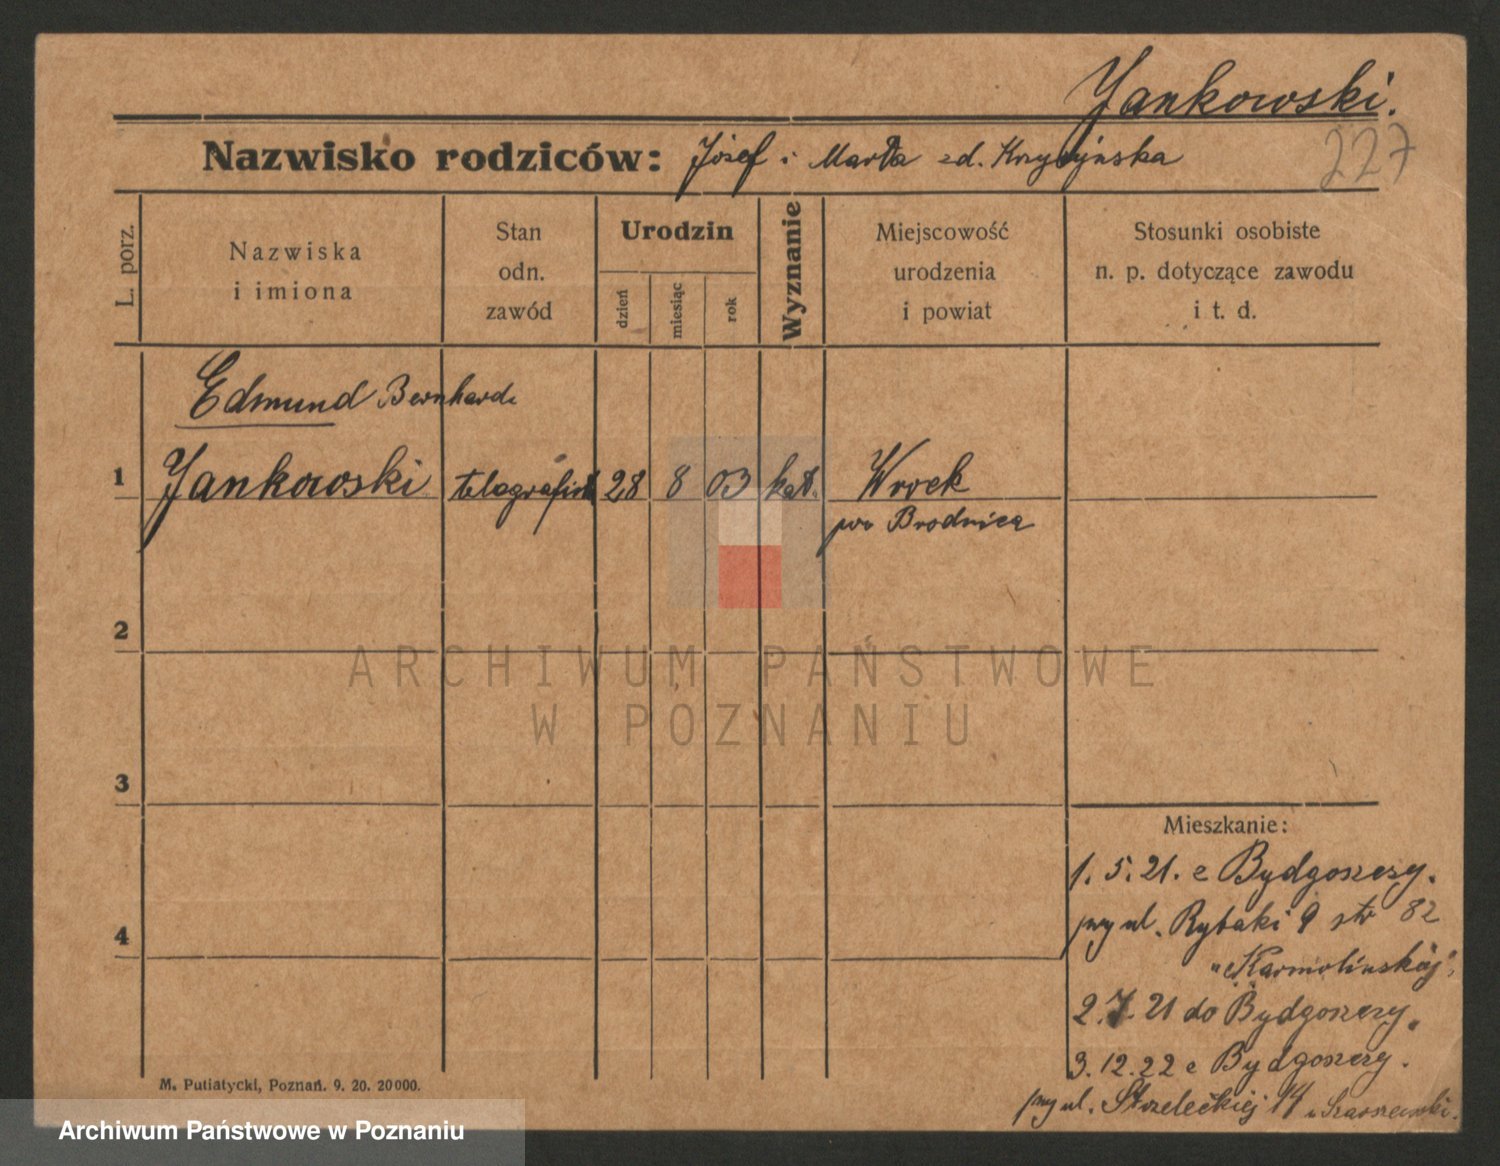 Jankowski.
227
Nazwisko rodziców: Józef i Marta zd.
L. porz.
Nazwiska
i imiona
Stan
odn.
zawód
Urodzin
dzień
miesiąc
rok
Wyznanie
Miejscowość
urodzenia
i powiat
Stosunki osobiste
n. p. dotyczące zawodu
i t. d.
Edmund Bernhard
1 Jankowski telegrafist 28 8 03 kat. Wrock
pow Brodnica
2
ARCHIWUM PAŃSTWOWE
W POZNANIU
3
4
Mieszkanie:
1. 5. 21. z Bydgoszczy.
przy ul. Rybaki 9 str 82
"Karmolińskiej"
2. 7. 21 do Bydgoszczy.
3. 12. 22 z Bydgoszczy.
przy ul. Strzeleckiej 14 u
M. Putiatycki, Poznań. 9. 20. 20000.
Archiwum Państwowe w Poznaniu